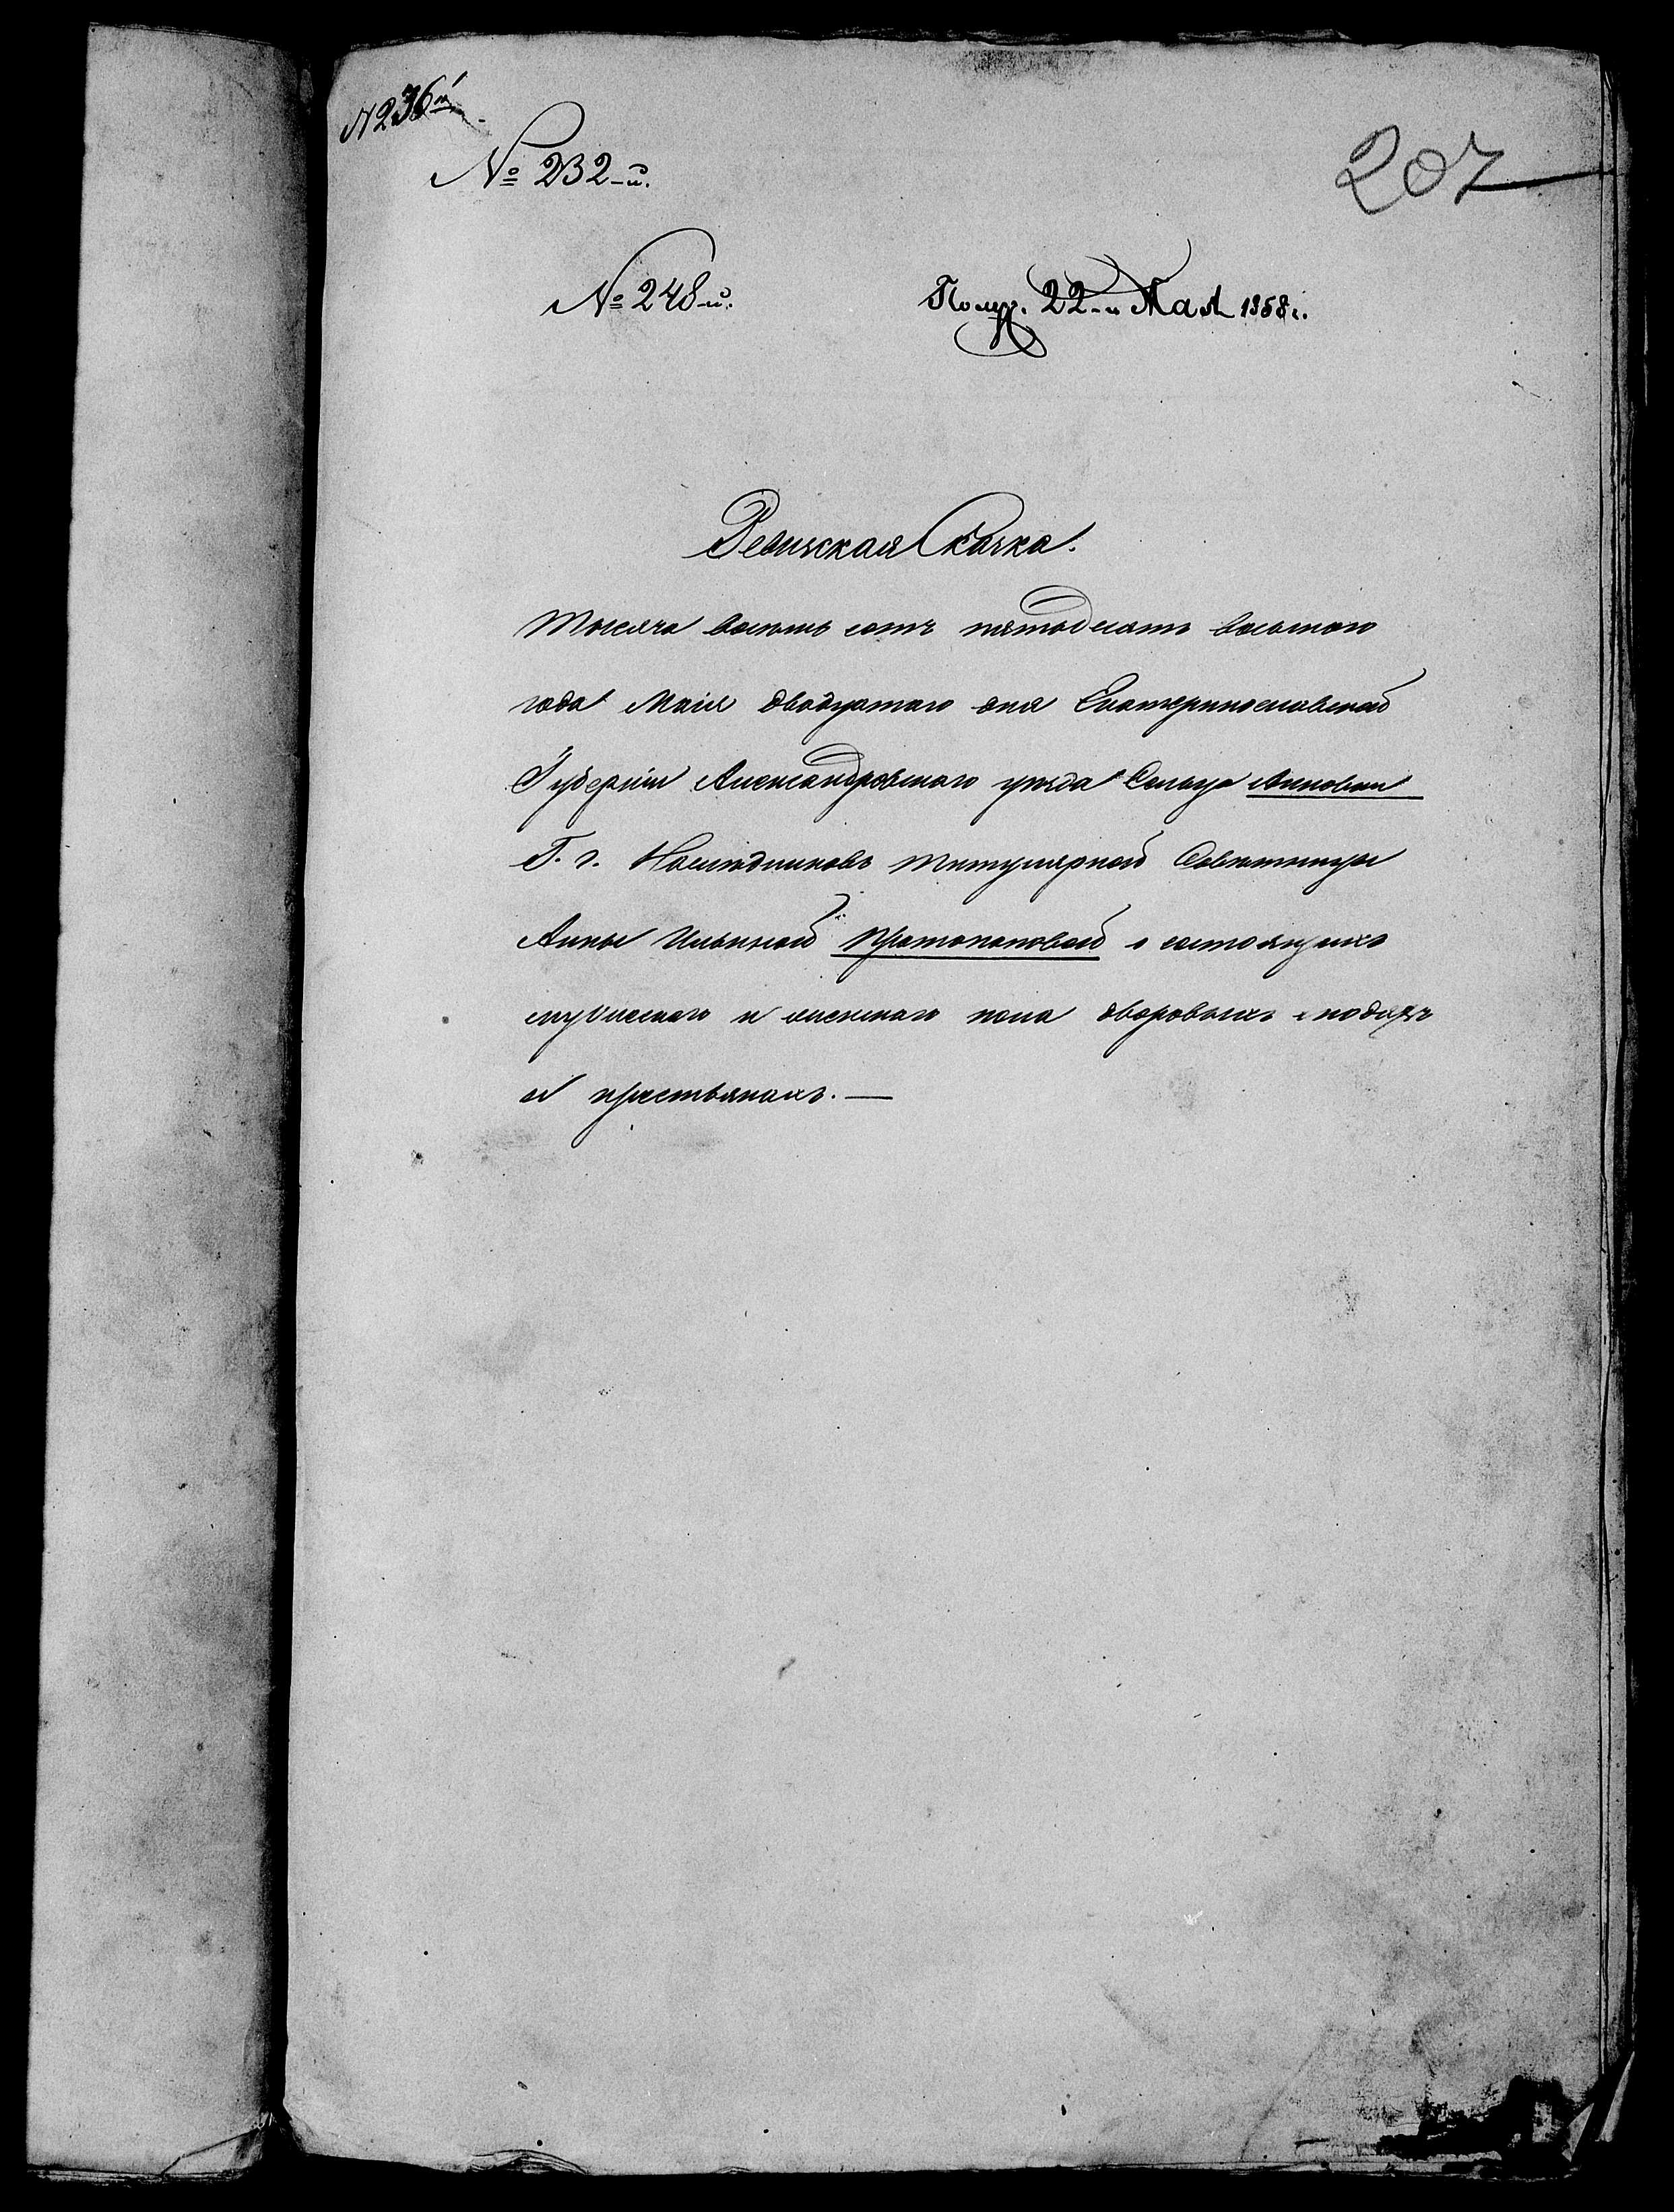 N 236й.
№ 232-й.
207
№ 248-й.
Получ. 22-й Мая 1858 г.
Ревизская Сказка.
Тысяча восемь сотъ пятьдесятъ восьмого
года Маія двадцатаго дня Екатеринославской
Губерніи Александровского уѣзда Сельца Анновки
Г. г. Наслѣдниковъ титулярной Совѣтницы
Анны Ильиной Протопоповой о состоящихъ
мужескаго и женскаго пола дворовыхъ людяхъ
и крестьянахъ. —